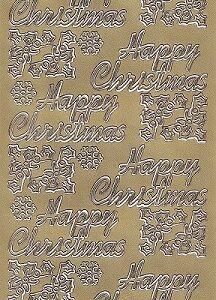 Happy
Christmas
Happy
Christmas
Happy
Christmas
Happy
Christmas
Happy
Christmas
Happy